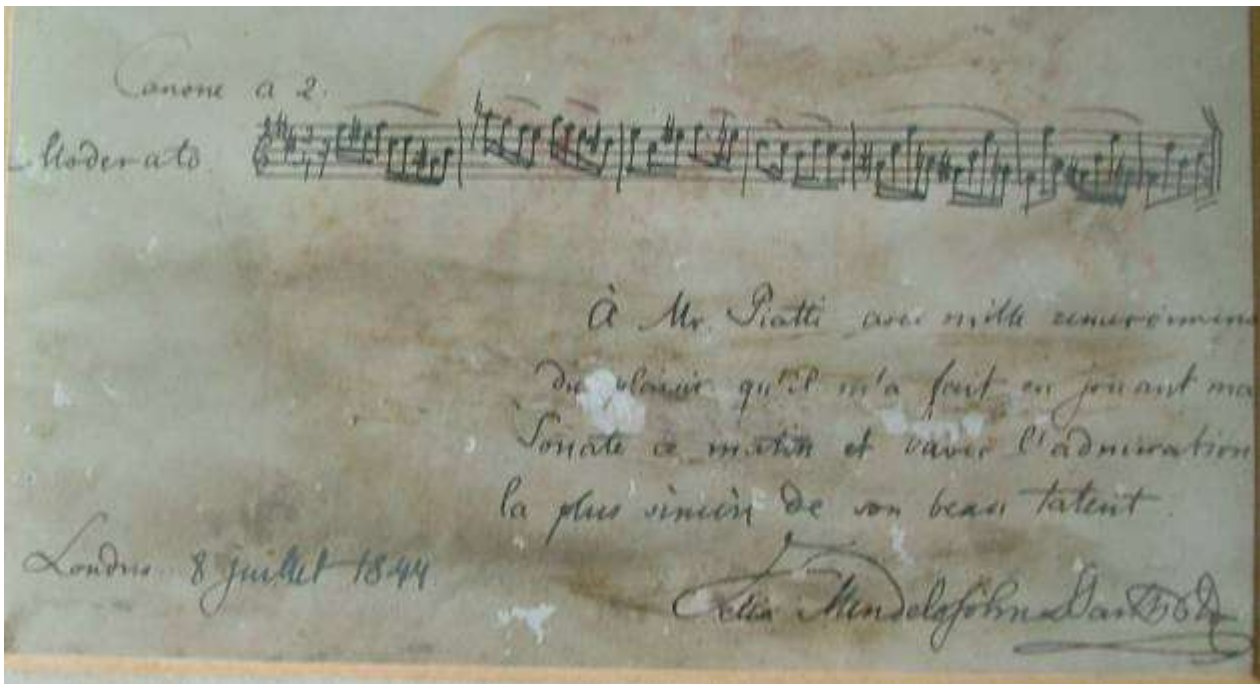 Canone a 2.
Moderato
À Mr. Piatti avec mille
du plaisir qu'il m'a fait en jouant ma
Sonate ce matin et avec l'admiration
la plus sincère de son beau talent.
Londres 8 juillet 1844
Felix Mendelssohn Bartholdy